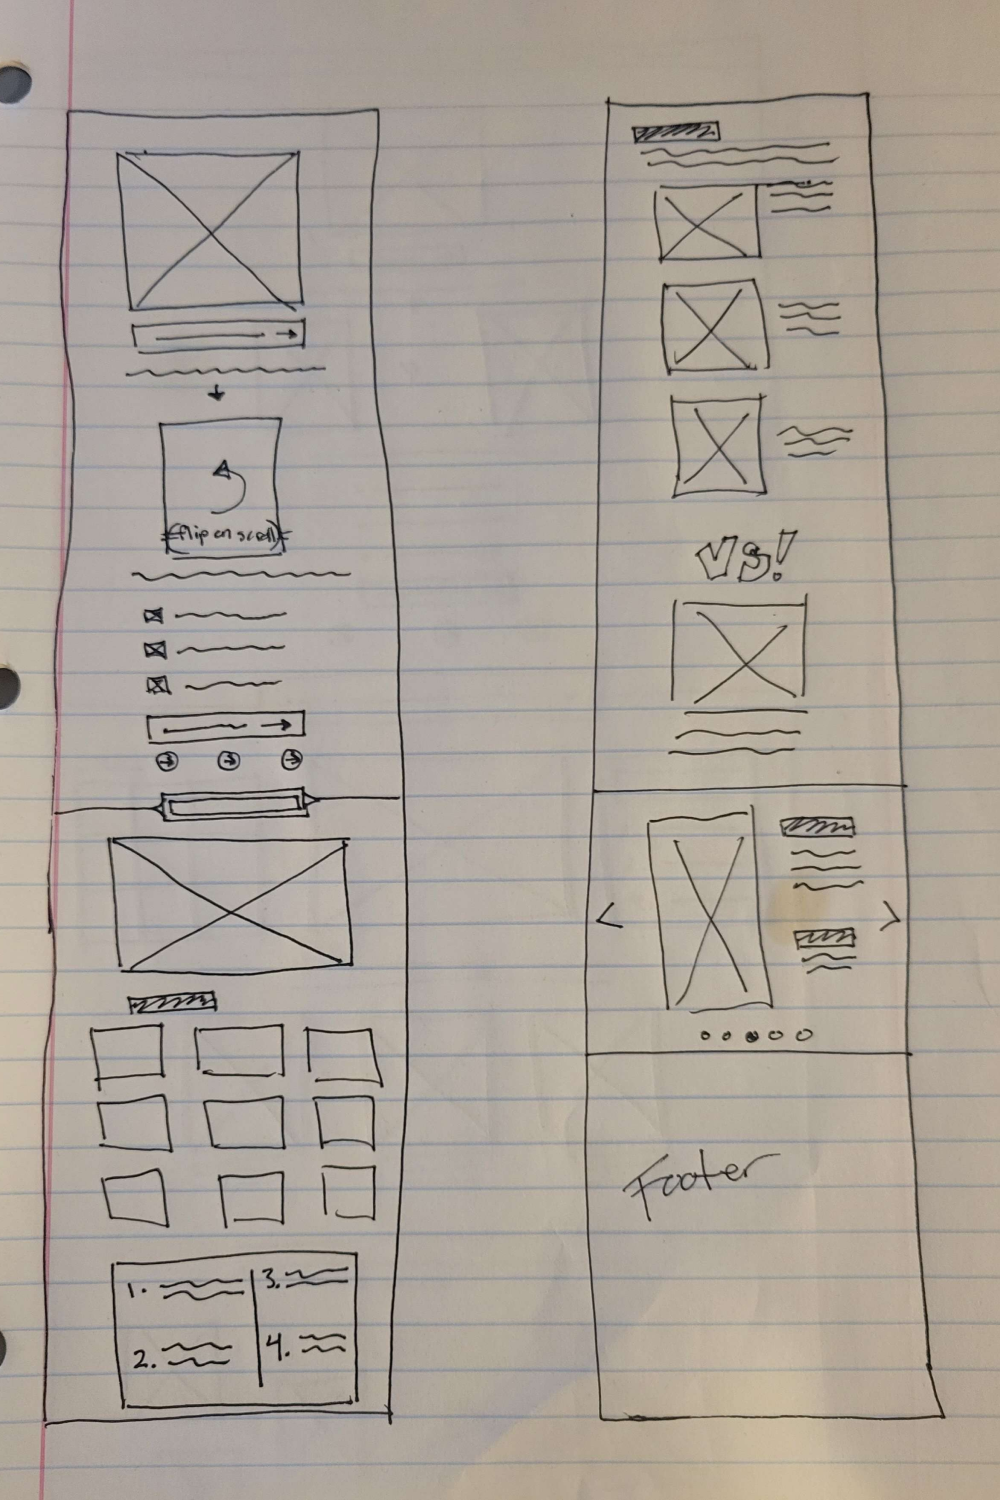 (flip on scroll)
1.
2.
3.
4.
VS!
Footer